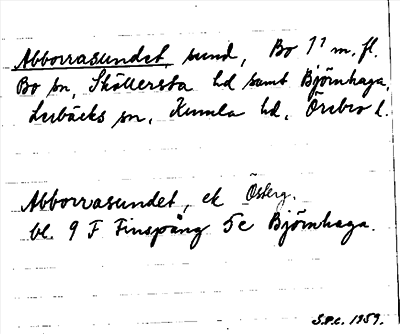 Abborrasundet, sund, Bo 1:1 m. fl.
Bo sn, Sköllersta hd samt Björnhaga,
Lerbäcks sn, Kumla hd, Örebro l.
Abborrasundet, ek Österg.
bl. 9 F Finspång 5c Björnhaga.
S.P.C. 1959.